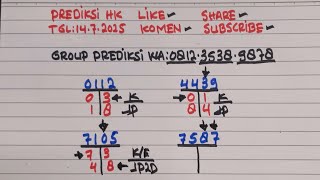 PREDIKSI HK LIKE SHARE
TGL:14.7.2025 KOMEN SUBSCRIBE
GROUP PREDIKSI WA:0812.3538.9878
0112 4439
0 3 K 0 1 K
1 8 JP 8 4 JP
7105 7587
7 3 K/E
4 8 JP2D